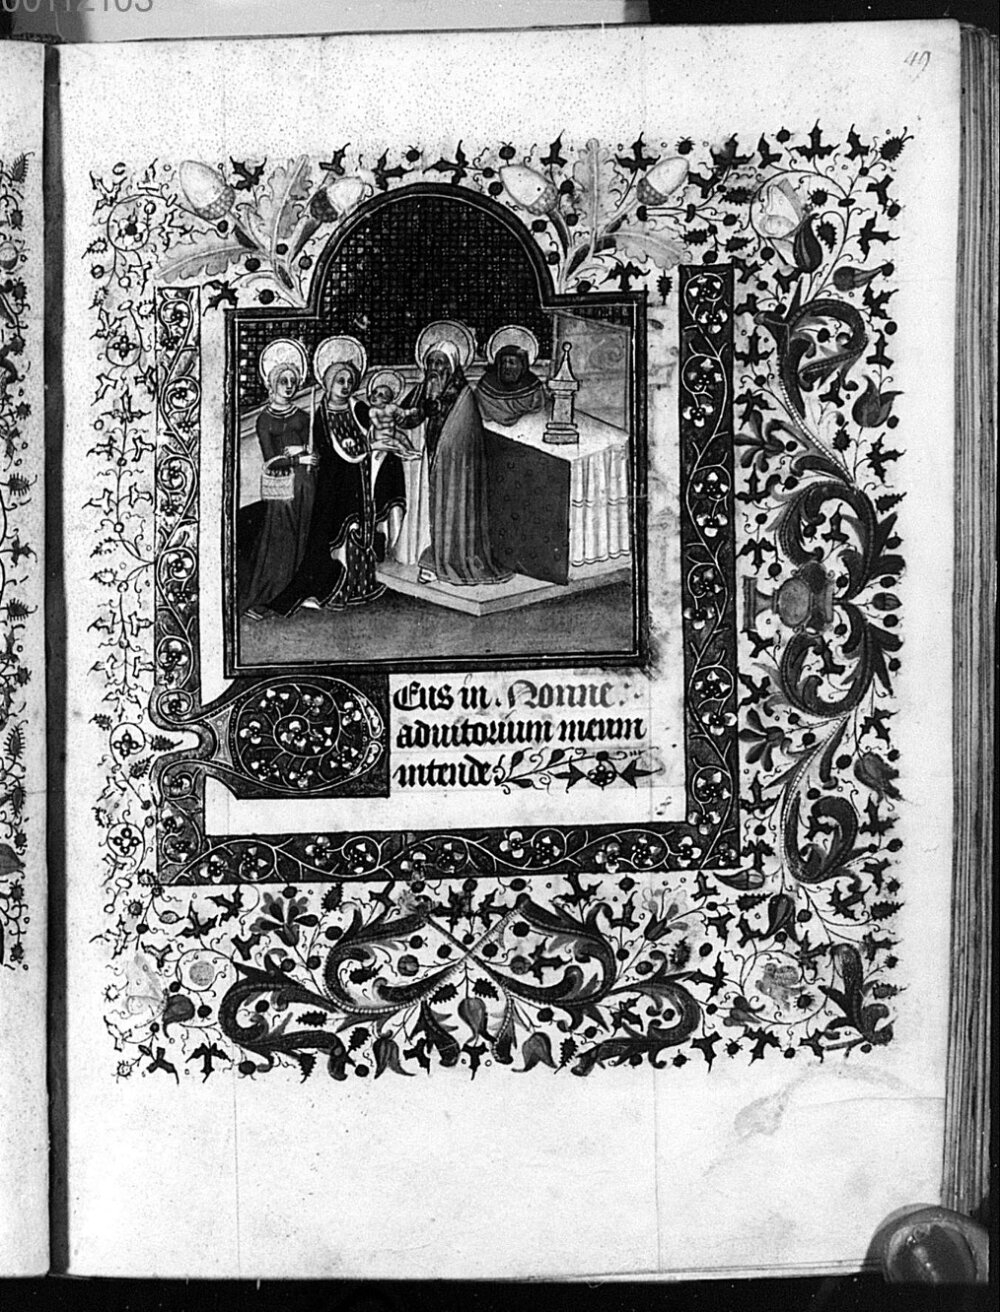 00112103
49
Deus in. Nonne.
adiutorium meum
intende